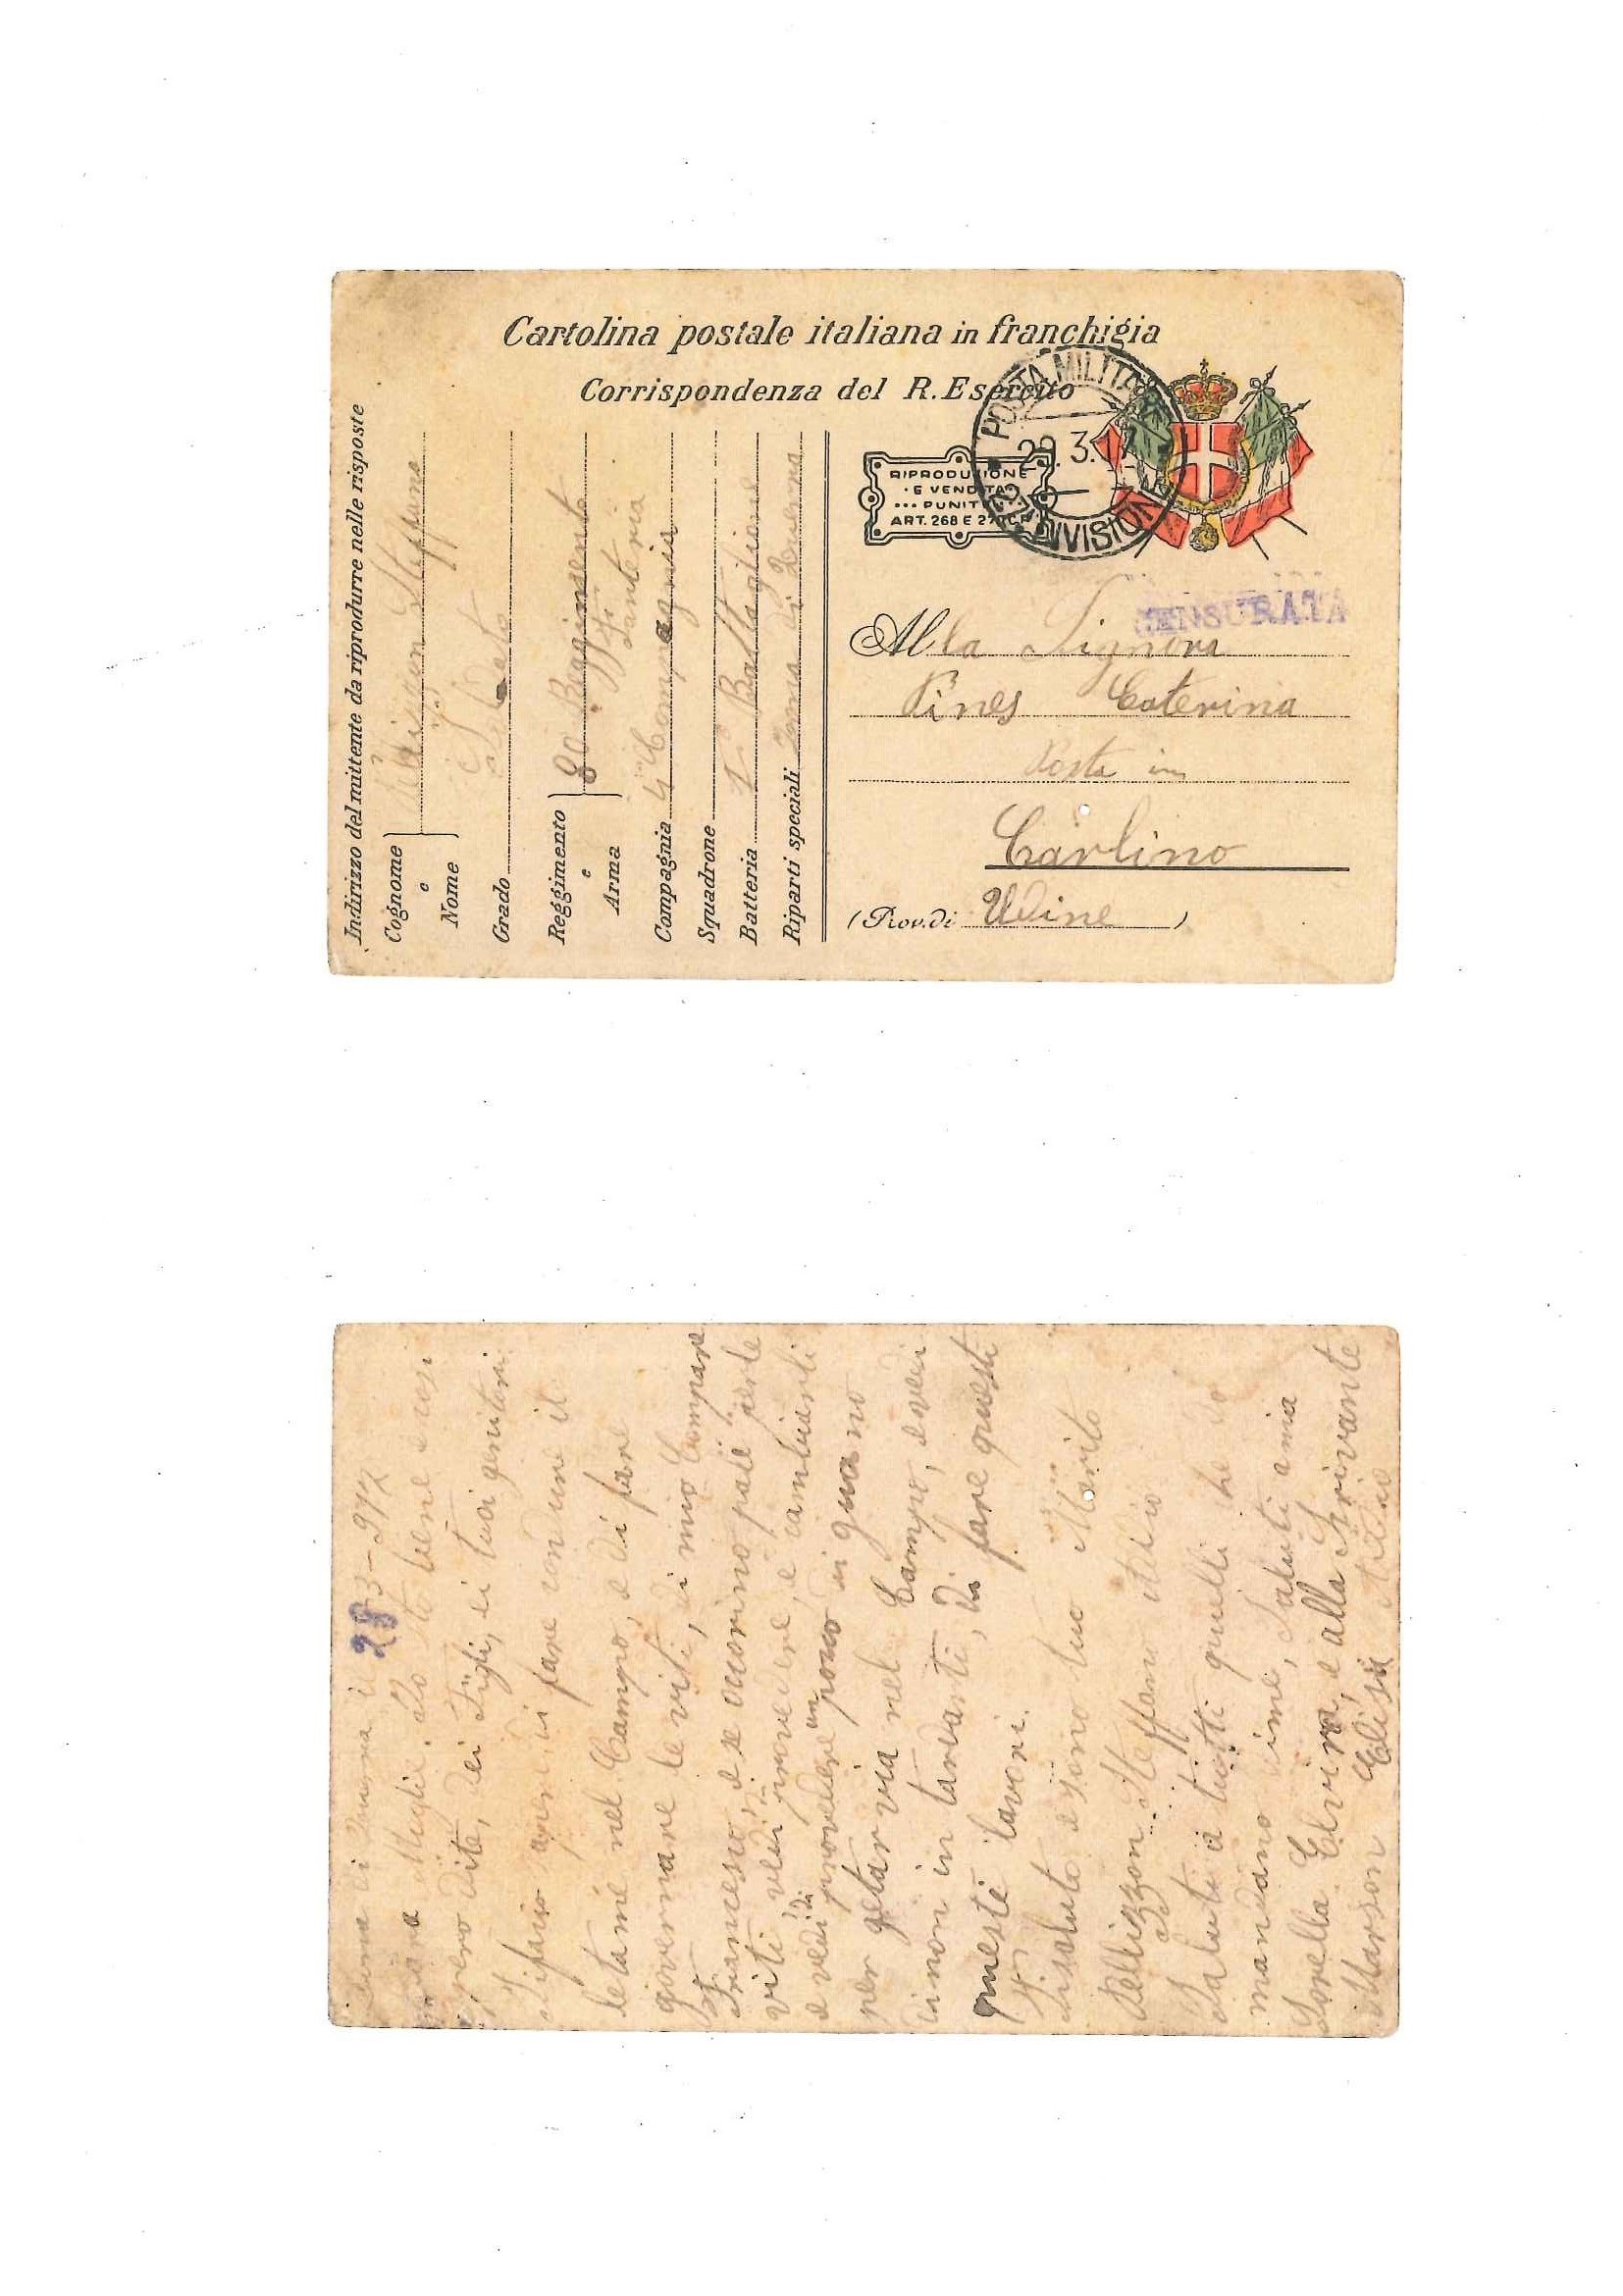 Cartolina postale italiana in franchigia
Corrispondenza del R. Esercito
Indirizzo del mittente da riprodurre nelle risposte
Cognome
e
Nome
Steffano
Grado
Reggimento
e
Arma
80 Reggimento
Fanteria
Compagnia 4 Compagnia
Squadrone
Batteria 1° Battaglione
Riparti speciali Zona di Guerra
RIPRODUZIONE
E VENDITA
PUNITE
ART. 268 E 27 C.P.
POSTA MILITARE
29.3.17
DIVISIONE
CENSURATA
Alla Signora
Pines Caterina
Posta in
Carlino
(Prov. di Udine)
Zona di Guerra il 28-3-917
Cara Moglie. Io sto bene e così
spero di te, dei Figli, ei tuoi genitori
Ti fare condure il
letame nel Campo, e di fare
governare le viti, di mio Compare
Francesco, e se ocorino pali per le
viti vedi provedere, e cambiarli
e vedi di provedere un poco di guano
per getar via nel Campo, e vedi
di non in tardarti, di fare questi
queste lavori.
Ti saluto e sono tuo Marito
Pellizzon Steffano adio
Saluti a tutti quelli che
mandano ime, Saluti a mia
Sorella Elvira, e alla Scrivante
Marson Elisa Adio